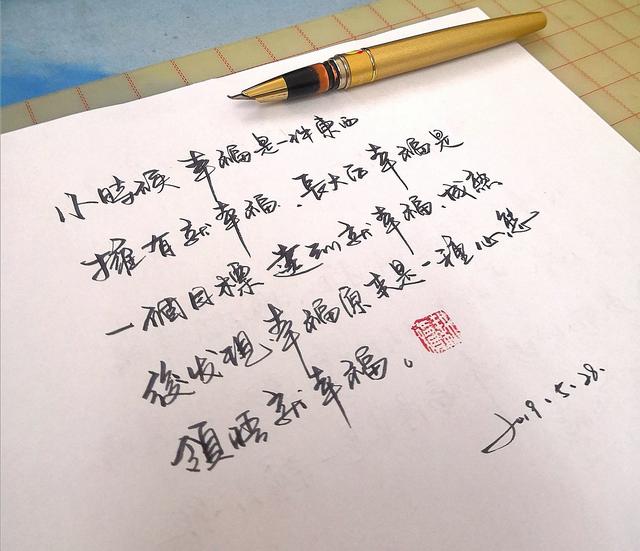 小時候 幸福是一件東西
擁有就幸福、長大后 幸福是
一個目標 達到就幸福、成熟
後发現 幸福原来是一種心態
領悟就幸福。
2019.5.28.